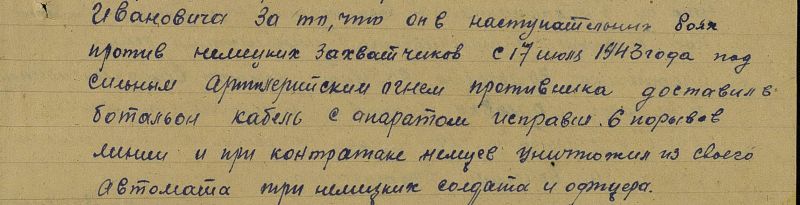 Ивановича за то, что он в наступательных боях
против немецких захватчиков с 17 июля 1943 года под
сильным артилерийским огнем противника доставил в
ботальон кабель с апаратом исправил 6 порывов
линии и при контратаке немцев уничтожил из своего
автомата три немецких солдата и офицера.